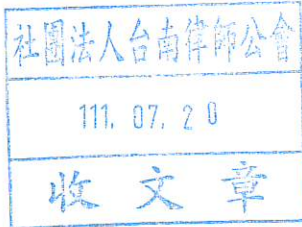 社團法人台南律師公會
111. 07. 20
收文章